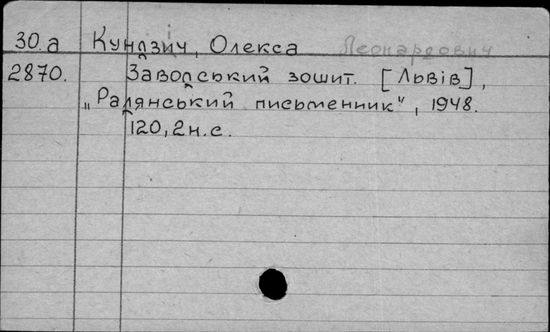 30.а Кундзіч, Олекса Леонардович
2870. Заводський зошит. [Львів],
„Радянський письменник", 1948.
120, 2н.с.